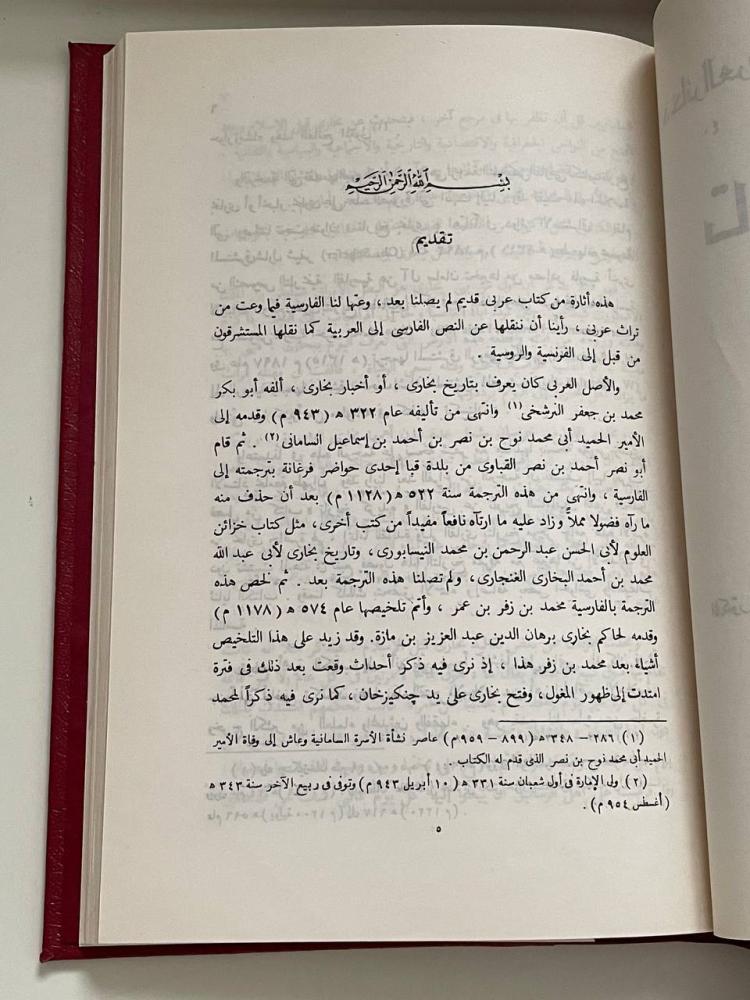 بسم الله الرحمن الرحيم
تقديم
هذه أثارة من كتاب عربى قديم لم يصلنا بعد ، وعتها لنا الفارسية فيما وعت من
تراث عربى ، رأينا أن ننقلها عن النص الفارسى إلى العربية كما نقلها المستشرقون
من قبل إلى الفرنسية والروسية .
والأصل العربى كان يعرف بتاريخ بخارى ، أو أخبار بخارى ، ألفه أبو بكر
محمد بن جعفر النرشخى (١) وانتهى من تأليفه عام ٣٢٢ ھ ( ٩٤٣ م ) وقدمه إلى
الأمير الحميد أبى محمد نوح بن نصر بن أحمد بن إسماعيل السامانى (٢) . ثم قام
أبو نصر أحمد بن نصر القباوى من بلدة قبا إحدى حواضر فرغانة بترجمته إلى
الفارسية ، وانتهى من هذه الترجمة سنة ٥٢٢ ھ ( ١١٢٨ م ) بعد أن حذف منه
ما رآه فضولا مملاًّ وزاد عليه ما ارتآه نافعاً مفيداً من كتب أخرى ، مثل كتاب خزائن
العلوم لأبى الحسن عبد الرحمن بن محمد النيسابورى ، وتاريخ بخارى لأبى عبد الله
محمد بن أحمد البخارى الغنجارى ، ولم تصلنا هذه الترجمة بعد . ثم لخص هذه
الترجمة بالفارسية محمد بن زفر بن عمر ، وأتم تلخيصها عام ٥٧٤ ھ ( ١١٧٨ م )
وقدمه لحاكم بخارى برهان الدين عبد العزيز بن مازة. وقد زيد على هذا التلخيص
أشياء بعد محمد بن زفر هذا ، إذ نرى فيه ذكر أحداث وقعت بعد ذلك فى فترة
امتدت إلى ظهور المغول ، وفتح بخارى على يد چنكيزخان ، كما نرى فيه ذكراً لمحمد
(١) ٢٨٦ – ٣٤٨ ھ ( ٨٩٩ – ٩٥٩ م ) عاصر نشأة الأسرة السامانية وعاش إلى وفاة الأمير
الحميد أبى محمد نوح بن نصر الذى قدم له الكتاب .
(٢) ولى الإمارة فى أول شعبان سنة ٣٣١ ھ ( ١٠ أبريل ٩٤٣ م ) وتوفى فى ربيع الآخر سنة ٣٤٣ ھ
( أغسطس ٩٥٤ م ) .
٥